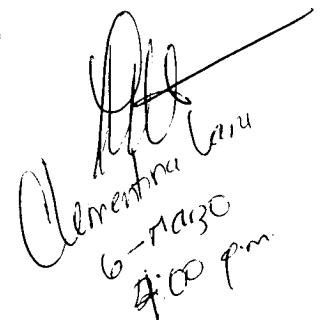 Clementina Lara
6-Marzo
4:00 p.m.